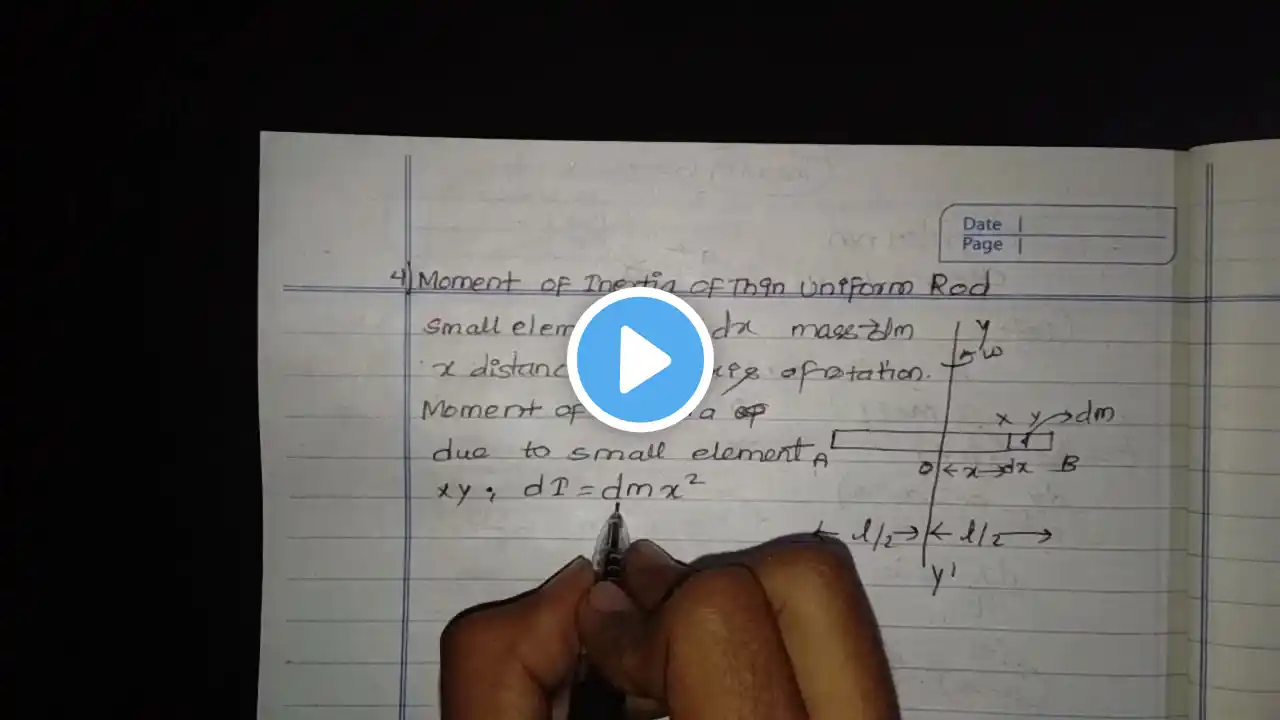 Date |
Page |
4) Moment of Inertia of Thin Uniform Rod
small elem dx mass dm
x distanc of rotation.
Moment of a of
due to small element
xy ; dI = dm x²
y
ω
x y → dm
A O ← x → dx B
← l/2 → ← l/2 →
y'